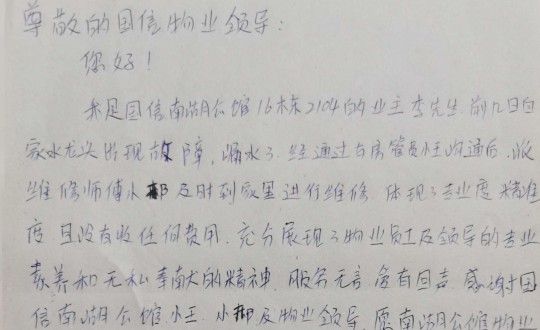 尊敬的国信物业领导：
您好！
我是国信南湖公馆16栋2104的业主李先生，前几日自
家水龙头出现故障，漏水了，经通过与房管员小王沟通后，派
维修师傅小郑及时到家里进行维修，体现了专业度、精准
度，且没有收任何费用，充分展现了物业员工及领导的专业
素养和无私奉献的精神，服务无言，含有回声，感谢国
信南湖公馆小王、小郑及物业领导，愿南湖公馆物业